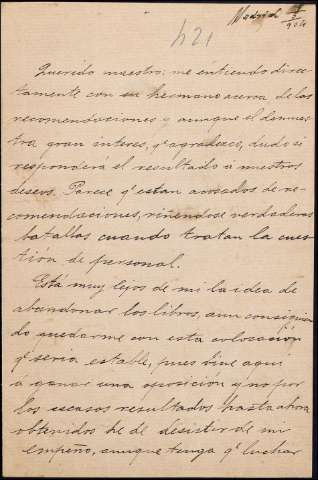 Madrid
421
Querido maestro: me entiendo direc-
tamente con su hermano acerca de las
recomendaciones y aunque él demues-
tra gran interes, qe agradezco, dudo si
responderá el resultado á nuestros
deseos. Parece qe estan acosados de re-
comendaciones, riñendose verdaderas
batallas cuando tratan la cues-
tión de personal.
Está muy lejos de mi la idea de
abandonar los libros, aun consiguien-
do quedarme con esta colocación
qe seria estable, pues vine aqui
á ganar una oposición y no por
los escasos resultados hasta ahora
obtenidos he de desistir de mi
empeño, aunque tenga qe luchar